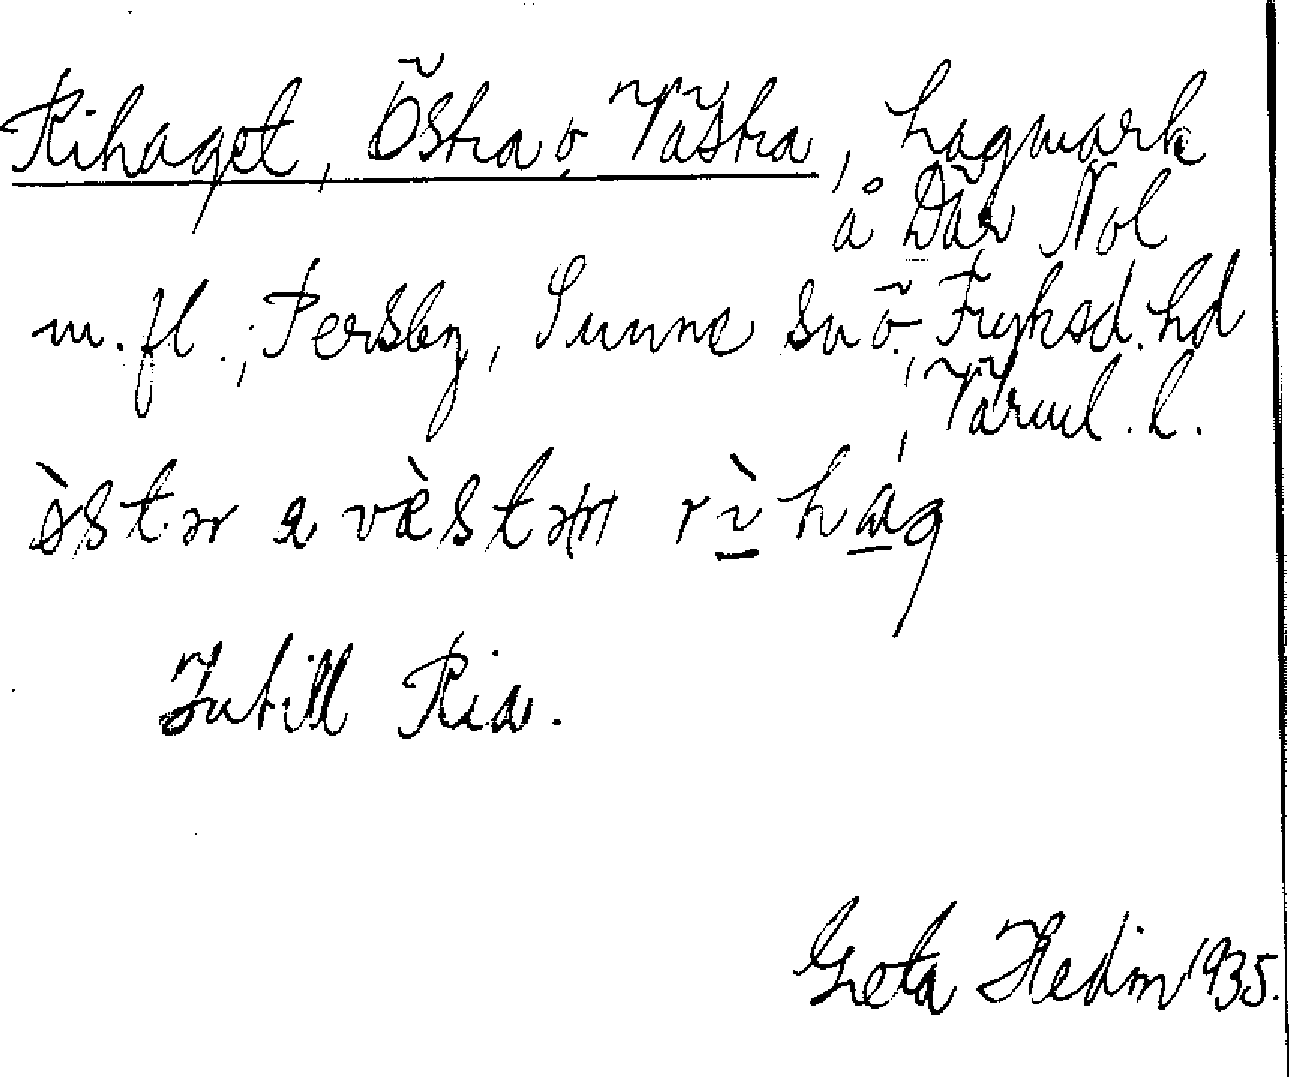 Rihaget, Östra o. Västra, hagmark
å Där Nol
m. fl., Persby, Sunne sn o. Fryksd. hd
, Värml. l.
òstər a vèstən rìhag
Intill Ria.
Greta Hedin 1935.